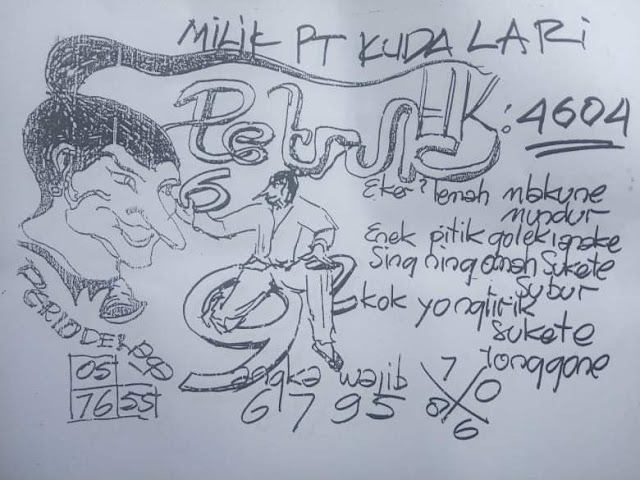 MILIK PT KUDA LARI
Petruk
HK: 4604
6
Eker² lemah mbakune
mundur
Enek pitik golek
Sing ning omah Sukete
Subur
kok yongtirik
Sukete
tonggone
9
PERIODE
05
76 55
angka wajib
6 7 9 5
7
0
8
6